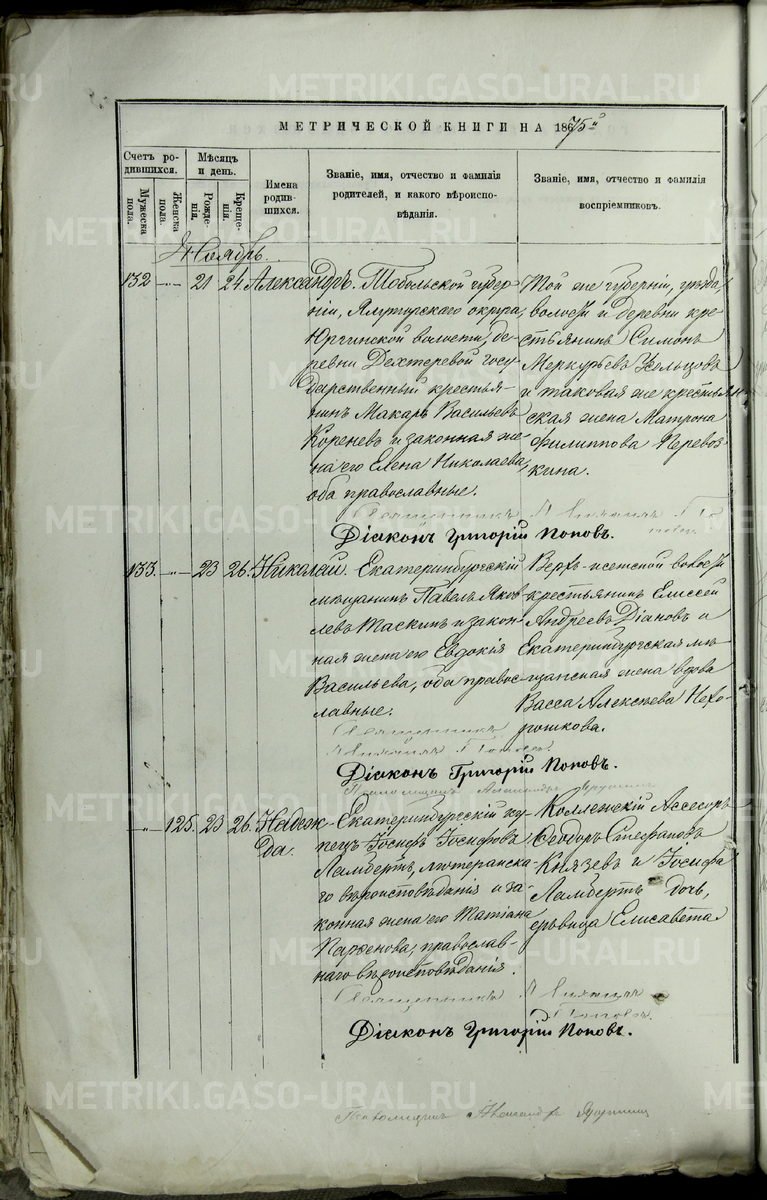 МЕТРИЧЕСКОЙ КНИГИ НА 1875й
Счетъ ро-
дившихся.
Мужеска
пола.
Женска
пола.
Мѣсяцъ
и день.
Рожде-
нія.
Креще-
нія.
Имена
родив-
шихся.
Званіе, имя, отчество и фамилія
родителей, и какого вѣроиспо-
вѣданія.
Званіе, имя, отчество и фамилія
воспріемниковъ.
Ноябрь.
132 21 24 Александръ.
Тобольской губер-
ніи, Ялуторскаго округа,
Юргинской волости, де-
ревни Дехтеревой госу-
дарственный крестья-
нинъ Макаръ Васильевъ
Кореневъ и законная же-
на его Елена Николаева,
оба православные.
Той же губерніи,
волости и деревни кре-
стьянинъ Симонъ
Меркурьевъ
и таковая же крестьян-
ская жена Матрона
Филиппова Перевоз-
кина.
Священникъ
Діаконъ Григорій Поповъ.
133. 23 26. Николай.
Екатеринбургскій
мѣщанинъ Павелъ Яков-
левъ Маскинъ и закон-
ная жена его Евдокія
Васильева, оба правос-
лавные.
Верхъ-исетской волости
крестьянинъ Елисей
Андреевъ Діановъ и
Екатеринбургская мѣ-
щанская жена вдова
Васса Алексѣева Нехо-
рошкова.
Священникъ
Діаконъ Григорій Поповъ.
125. 23 26. Надеж-
да.
Екатеринбургскій ку-
пецъ Іосифъ Іосифовъ
Ламбертъ, лютеранска-
го вѣроисповѣданія и за-
конная жена его Татіана
Парѳенова, православ-
наго вѣроисповѣданія.
Коллежскій Ассесоръ
Ѳеодоръ Стефановъ
Князевъ и Іосифа
Ламбертъ дочь,
дѣвица Елисавета
Священникъ
Діаконъ Григорій Поповъ.
METRIKI.GASO-URAL.RU